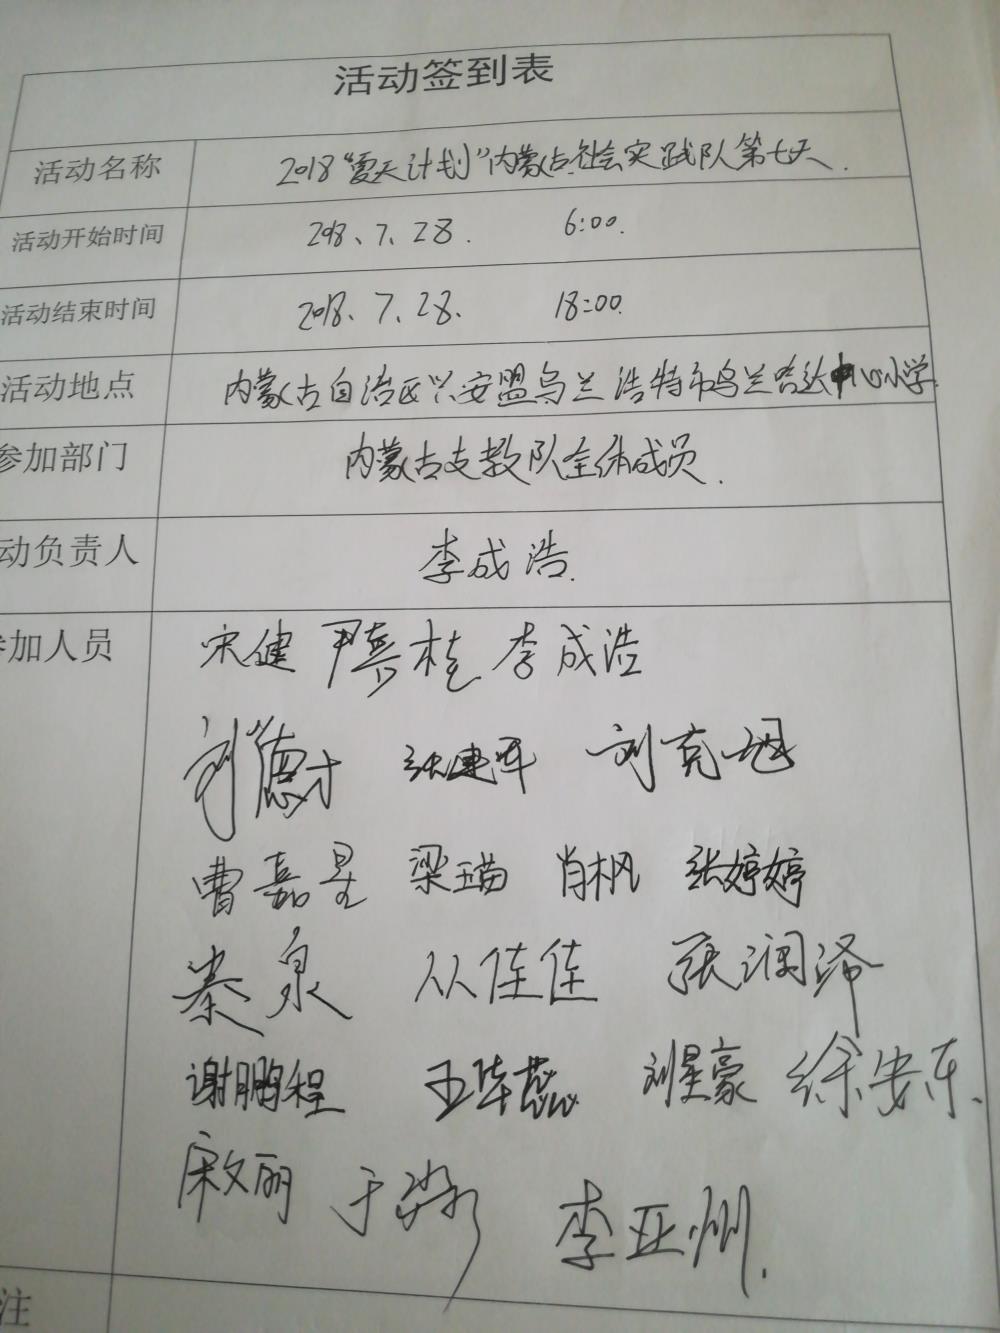 活动签到表
活动名称 2018“夏天计划”内蒙古社会实践队第七天.
活动开始时间 2018、7、28. 6:00.
活动结束时间 2018、7、28、 18:00.
活动地点 内蒙古自治区兴安盟乌兰浩特市乌兰哈达中心小学
参加部门 内蒙古支教队全体成员.
动负责人 李成浩.
参加人员 宋健 尹燕桂 李成浩
刘德才 张建军 刘克旭
曹嘉星 梁玉苗 肖枫 张婷婷
秦泉 从佳佳 张润泽
谢鹏程 王华蕊 刘星豪 徐安东.
宋文丽 于淼 李亚州.
注